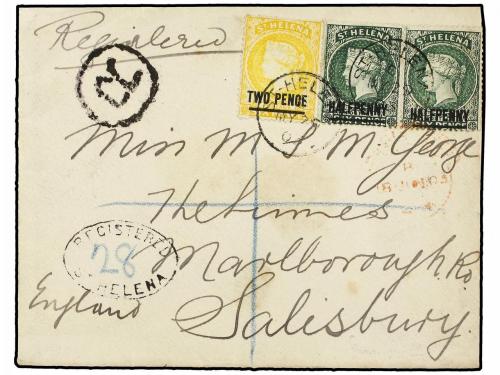 Registered
R
ST HELENA
TWO PENCE
ST HELENA
HALFPENNY
ST HELENA
HALFPENNY
ST-HELE
HELEN
Miss M. L. M. George
The Limes
Marlborough Rd
Salisbury.
England
REGISTERED
28
ST HELENA